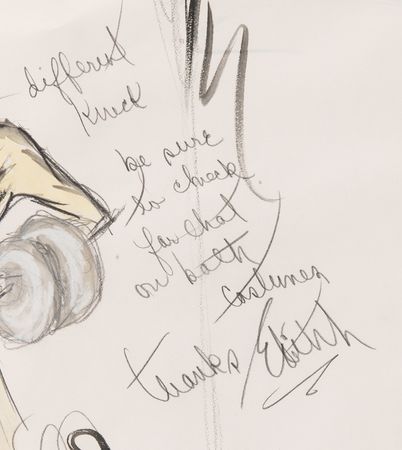 different
be sure
to check
for that
on both
costumes
thanks Edith